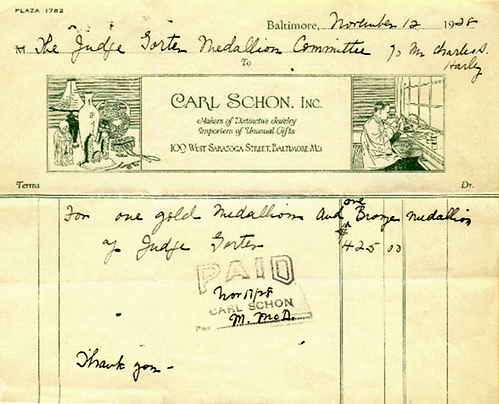 PLAZA 1782
Baltimore, November 12 1928
M The Judge Gorter Medallion Committee % Mr Charles D. Harley
To
CARL SCHON, INC.
Makers of Distinctive Jewelry
Importers of Unusual Gifts
109 WEST SARATOGA STREET, BALTIMORE, MD
Terms Dr.
For one gold Medallion and one Bronze Medallion
of Judge Gorter $425 00
PAID
Nov 17/28
CARL SCHON
Per M. McD.
Thank you -